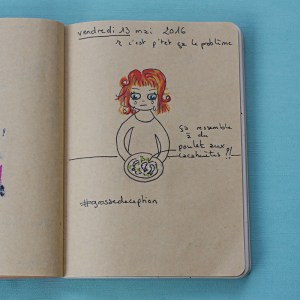 vendredi 13 mai 2016
c'est p'tet ça le problème
ça ressemble
à du
poulet aux
cacahuètes !!
#grossedeception